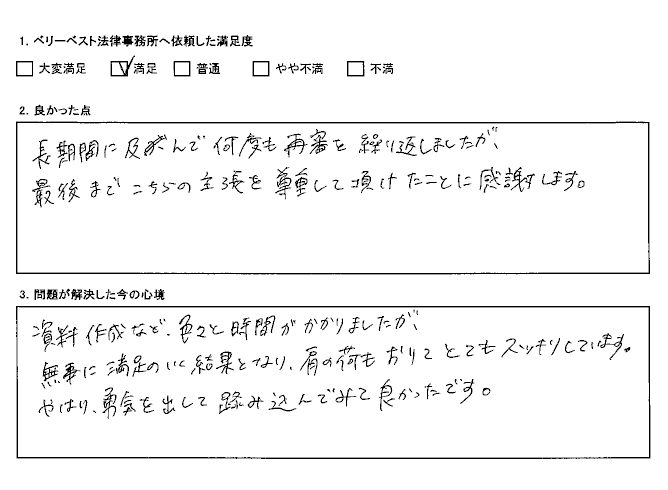 1. ベリーベスト法律事務所へ依頼した満足度
大変満足 満足 普通 やや不満 不満
2. 良かった点
長期間に及んで何度も再審を繰り返しましたが、
最後までこちらの主張を尊重して頂けたことに感謝します。
3. 問題が解決した今の心境
資料作成など、色々と時間がかかりましたが、
無事に満足のいく結果となり、肩の荷もおりてとてもスッキリしています。
やはり、勇気を出して踏み込んでみて良かったです。